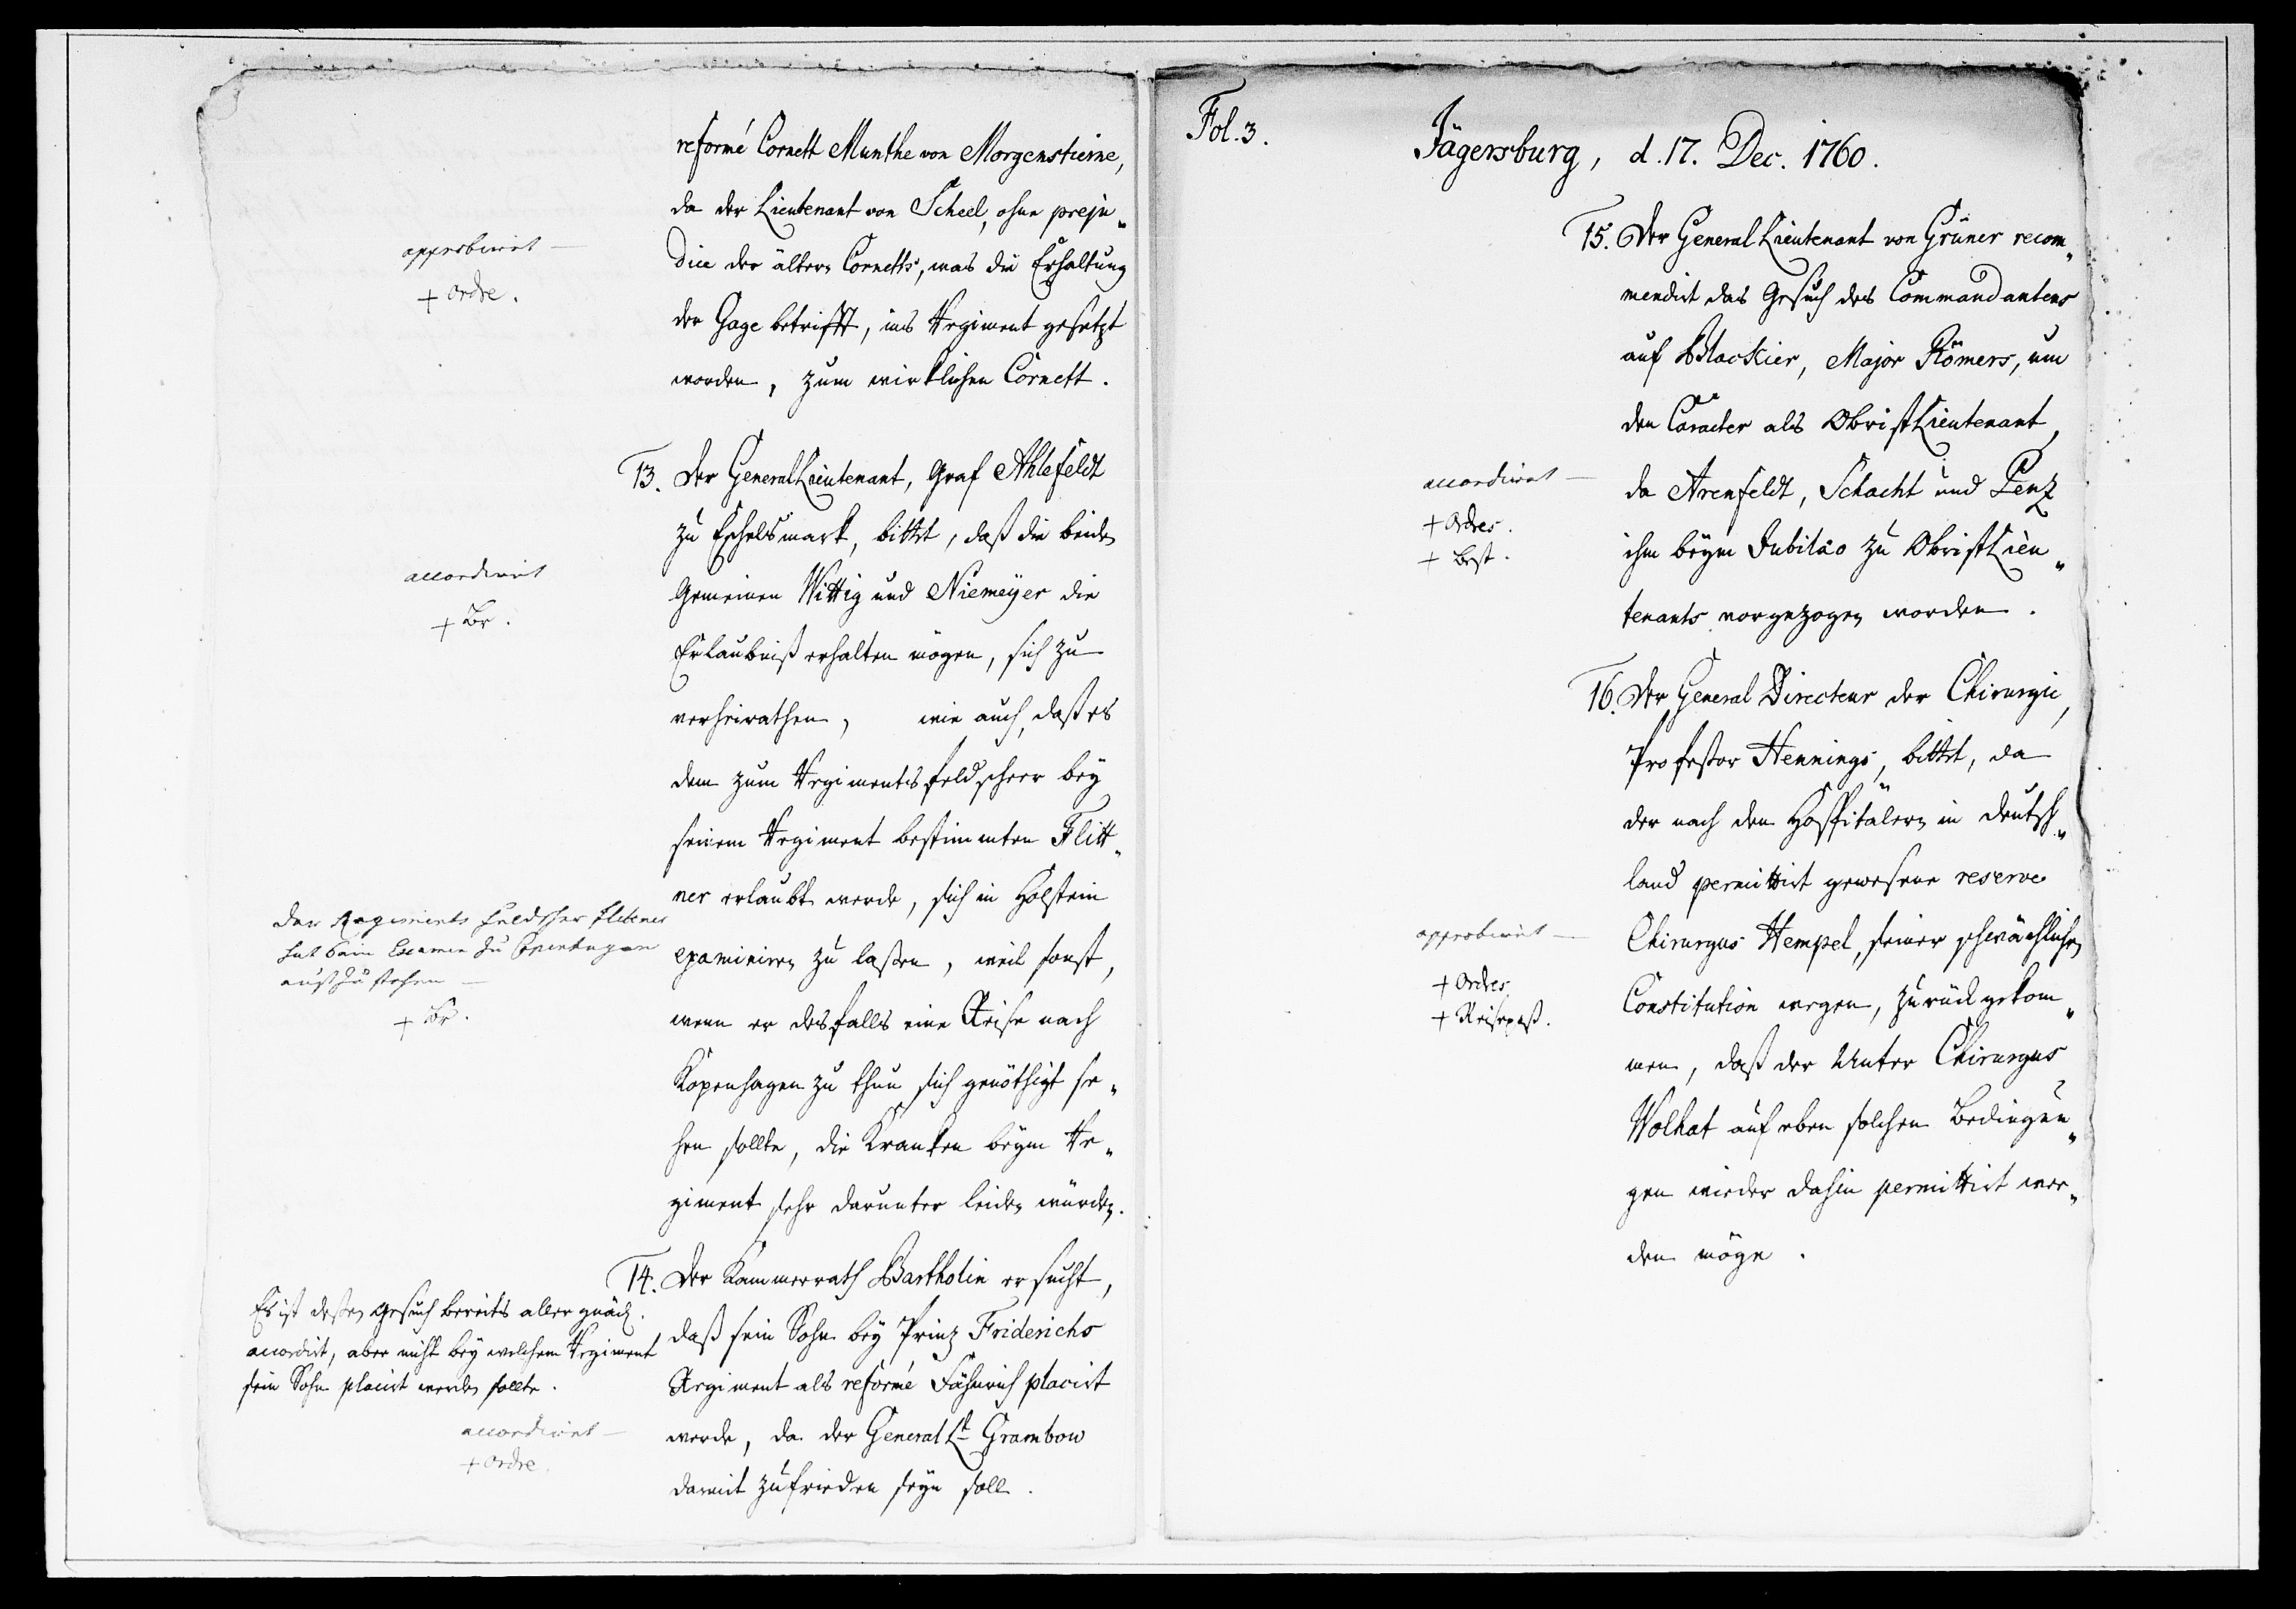 reformé Cornett Munthe von Morgenstierne,
da der Lieutenant von Scheel, ohne preju„
dice der ältern Cornetts, was die Erhaltung
der Gage betrifft, ins Regiment gesetzt
worden, zum wirklichen Cornett.
approbiret —
+ ordre.
13. Der GeneralLieutenant, Graf Ahlefeldt
zu Eschelsmark, bittet, daß die beiden
Gemeinen Wittig und Niemeÿer die
Erlaubniß erhalten mögen, sich zu
verheirathen, wie auch, daß es
dem zum Regimentsfeldscheer beÿ
seinem Regiment bestimmten Flitt„
ner erlaubt werde, sich in Holstein
examiniren zu laßen, weil sonst,
wenn er desfalls eine Reise nach
Kopenhagen zu thun sich genöthigt se„
hen sollte, die Kranken beÿm Re„
giment sehr darunter leiden würden.
accordiret
+ Br.
Der Regiments Feldscher Flitner
hat sein Examen zu Copenhagen
auszustehen —
+ Br.
14. Der Kammerrath Bartholin ersucht,
daß sein Sohn beÿ Prinz Friderichs
Regiment als reformé Fähnrich placirt
werde, da der General Lt Grambow
damit zufrieden seÿn soll.
Es ist deßen Gesuch bereits allergnäd.
accordirt, aber nicht beÿ welchem Regiment
sein Sohn placirt werden sollte.
accordiret —
+ ordre.
Fol. 3.
Jägersburg, d. 17. Dec. 1760.
15. Der General Lieutenant von Grüner recom„
mendirt das Gesuch des Commandanten
auf Blaakier, Major Römers, um
den Caracter als ObristLieutenant,
da Arenfeldt, Schacht und Penz
ihm beÿm Jubiläo zu ObristLieu„
tenants vorgezogen worden.
accordiret —
+ Ordres.
+ Best.
16. Der General Directeur der Chirurgie,
Professor Hennings, bittet, da
der nach den Hospitälern in Deutsch„
land permittirt gewesene reserve
Chirurgus Hempel, seiner schwächlichen
Constitution wegen, zurückgekom„
men, daß der Unter Chirurgus
Wolhat auf eben solchen Bedingun„
gen wieder dahin permittirt wer„
den möge.
approbiret —
+ Ordres
+ Reisepaß.